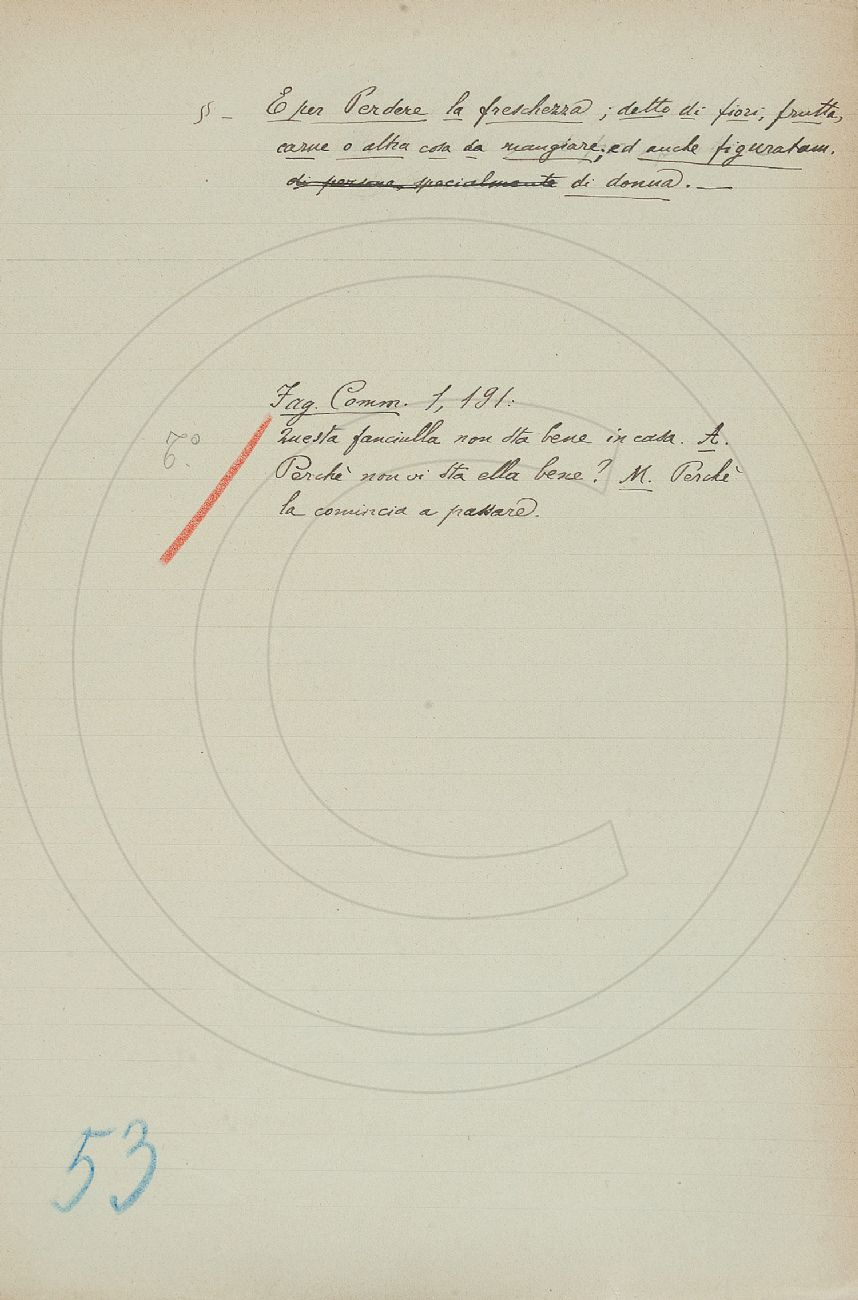 § - E per Perdere la freschezza; detto di fiori, frutta,
carne o altra cosa da mangiare; ed anche figuratam.
di persona, specialmente di donna. —
Fag. Comm. 1, 191:
6.° Questa fanciulla non sta bene in casa. A.
Perchè non vi sta ella bene? M. Perchè
la comincia a passare.
53